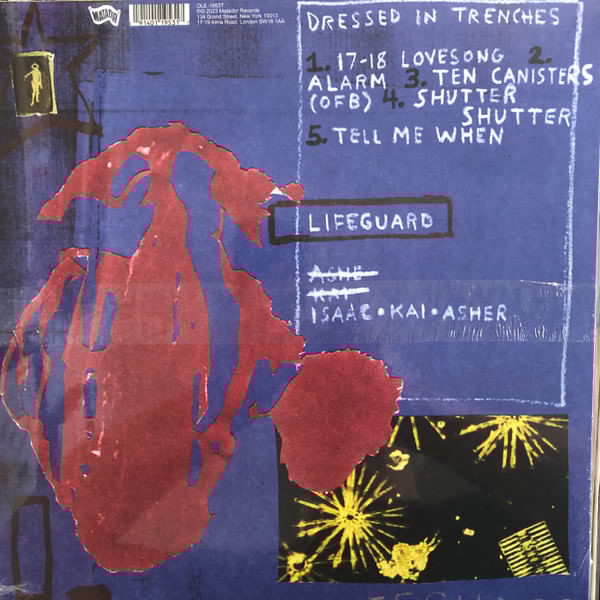 MATADOR
OLE-1953T
℗© 2023 Matador Records
134 Grand Street, New York 10013
17-19 Alma Road, London SW18 1AA
DRESSED IN TRENCHES
1. 17-18 LOVESONG 2.
ALARM 3. TEN CANISTERS
(OFB) 4. SHUTTER
SHUTTER
5. TELL ME WHEN
LIFEGUARD
ASHE
KAI
ISAAC • KAI • ASHER